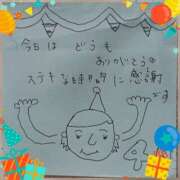 今日は どうも
ありがとう
ステキな時間に感謝
です
4